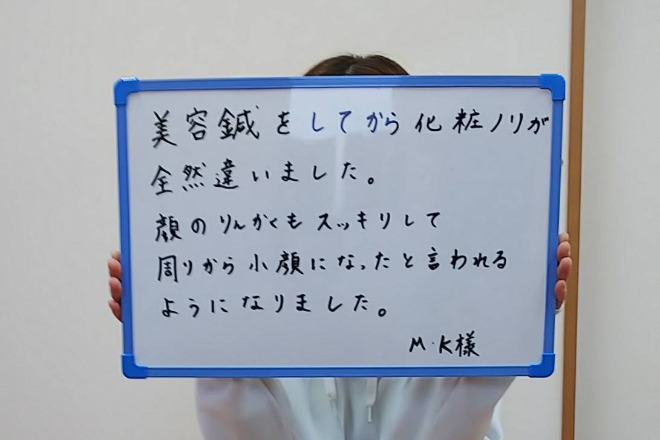 美容鍼をしてから化粧ノリが
全然違いました。
顔のりんかくもスッキリして
周りから小顔になったと言われる
ようになりました。
M・K様